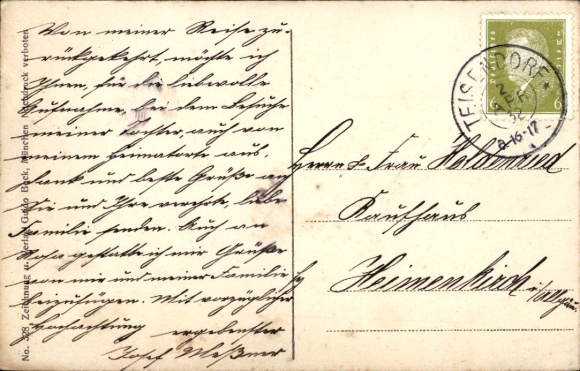 Von meiner Reise zu-
rückgekehrt, möchte ich
Ihnen, für die liebevolle
Aufnahme, bei dem Besuche
meiner Tochter, auch von
meinem Heimatorte aus,
dank und beste Grüße an
Sie und Ihre verehrte, liebe
Familie senden. Auch an
Rosa gestatte ich mir Grüße
von mir und meiner Familie
beizufügen. Mit vorzüglicher
Hochachtung ergebenster
Josef Meßner
Herrn & Frau
Kaufhaus
Heimenkirch
i/Allgäu
TEISENDORF
8-16-17
6
No. 328 Zeichnung u. Verlag Guido Beck, München Nachdruck verboten